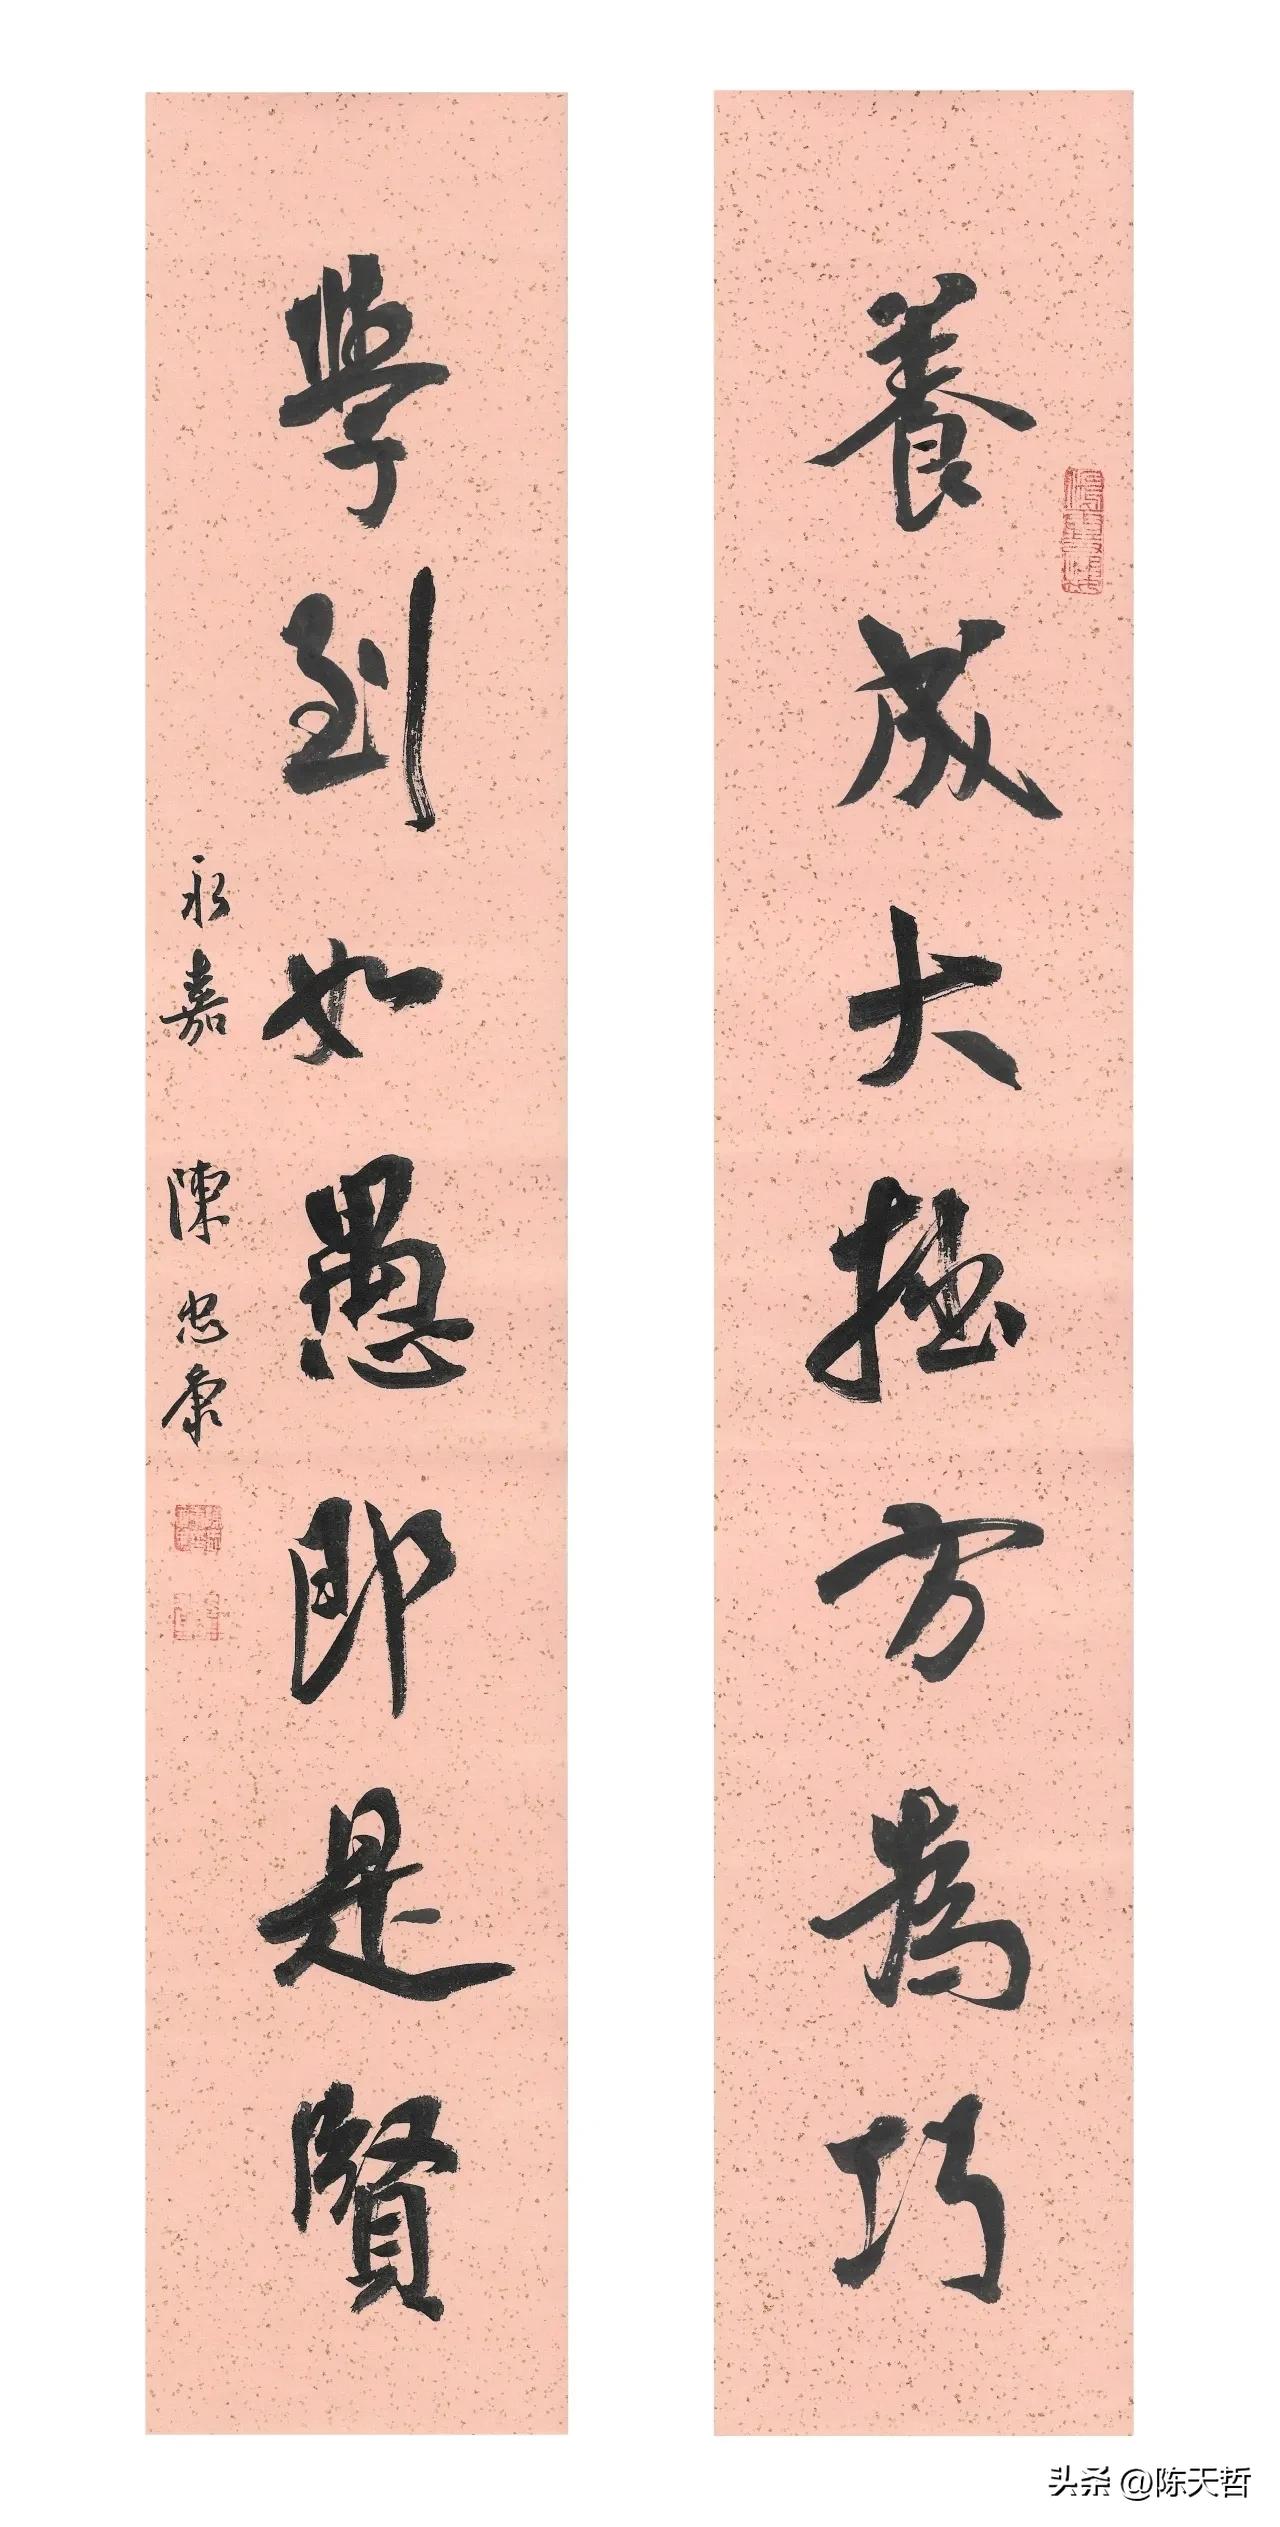 養成大拙方為巧
學到如愚即是賢
永嘉 陳忠康
头条 @陈天哲